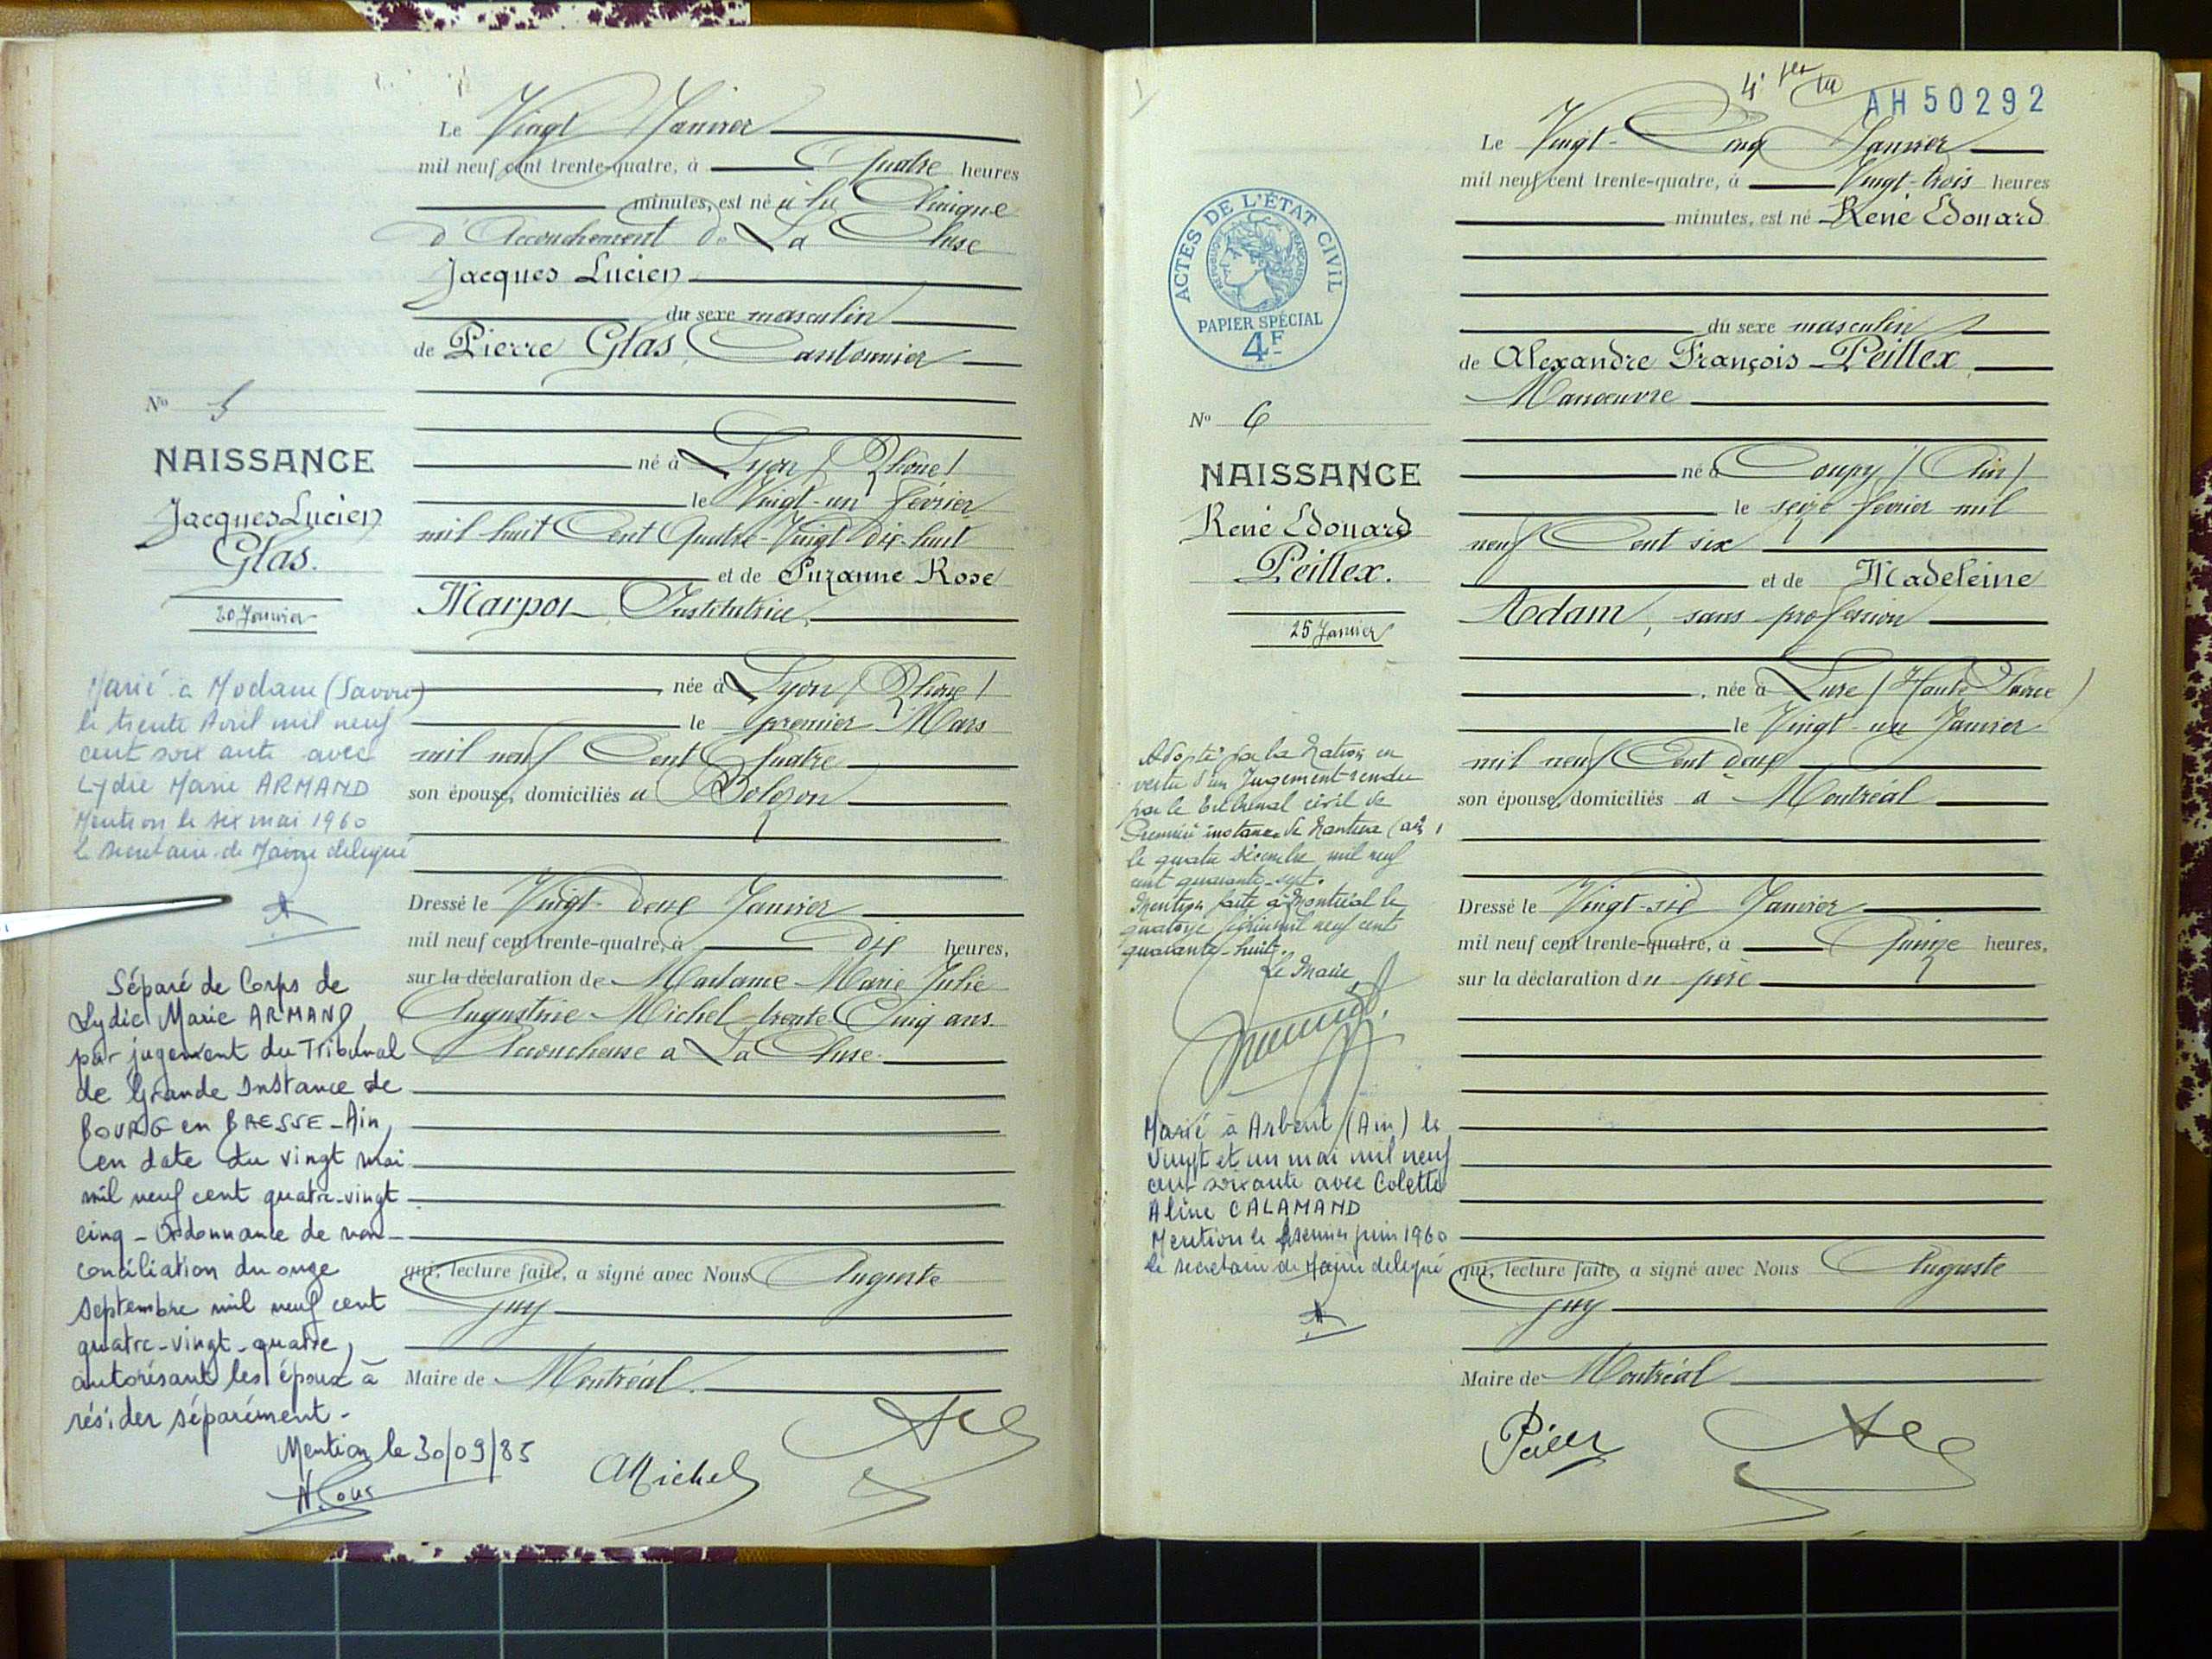 Le Vingt Janvier
mil neuf cent trente-quatre, à Quatre heures
minutes, est né à la Clinique
d'Accouchement de La Cluse
Jacques Lucien
du sexe masculin
de Pierre Glas, Cantonnier
né à Lyon (Rhône)
le Vingt-un février
mil huit Cent Quatre-Vingt dix-huit
et de Suzanne Rose
Institutrice,
née à Lyon (Rhône)
le premier Mars
mil neuf Cent Quatre
son épouse, domiciliés à
Dressé le Vingt-deux Janvier
mil neuf cent trente-quatre, à dix heures,
sur la déclaration de Madame Marie Julie
Augustine Michel trente Cinq ans
Accoucheuse à La Cluse
qui, lecture faite, a signé avec Nous Auguste
Guy
Maire de Montréal.
AMichel
No 5
NAISSANCE
Jacques Lucien
Glas.
20 Janvier
Marié à Modane (Savoie)
le trente Avril mil neuf
cent soixante avec
Lydie Marie ARMAND
Mention le six mai 1960
le secrétaire de Mairie délégué
Séparé de Corps de
Lydie Marie ARMAND,
par jugement du Tribunal
de Grande Instance de
BOURG en BRESSE - Ain,
en date du vingt mai
mil neuf cent quatre-vingt
cinq - Ordonnance de non-
conciliation du onze
septembre mil neuf cent
quatre-vingt-quatre,
autorisant les époux à
résider séparément -
Mention le 30/09/85
AH50292
Le Vingt-Cinq Janvier
mil neuf cent trente-quatre, à Vingt-trois heures
minutes, est né René Edouard
du sexe masculin
de Alexandre François Peillex,
Manoeuvre
né à Coupy (Ain)
le seize février mil
neuf Cent six
et de Madeleine
Adam, sans profession
, née à Lure (Haute Saône)
le Vingt-un Janvier
mil neuf Cent douze
son épouse, domiciliés à Montréal
Dressé le Vingt-six Janvier
mil neuf cent trente-quatre, à Quinze heures,
sur la déclaration du père
qui, lecture faite, a signé avec Nous Auguste
Guy
Maire de Montréal
ACTES DE L'ÉTAT CIVIL
RÉPUBLIQUE FRANÇAISE
PAPIER SPÉCIAL
4F
No 6
NAISSANCE
René Edouard
Peillex.
25 Janvier
Adopté par la Nation en
vertu d'un Jugement rendu
par le tribunal civil de
Première instance de Nantua (Ain)
le quatre décembre mil neuf
cent quarante-sept.
Mention faite à Montréal le
quatorze février mil neuf cent
quarante-huit.
Le Maire
Marié à Arbent (Ain) le
vingt et un mai mil neuf
cent soixante avec Colette
Aline CALAMAND
Mention le premier juin 1960
le secrétaire de Mairie délégué